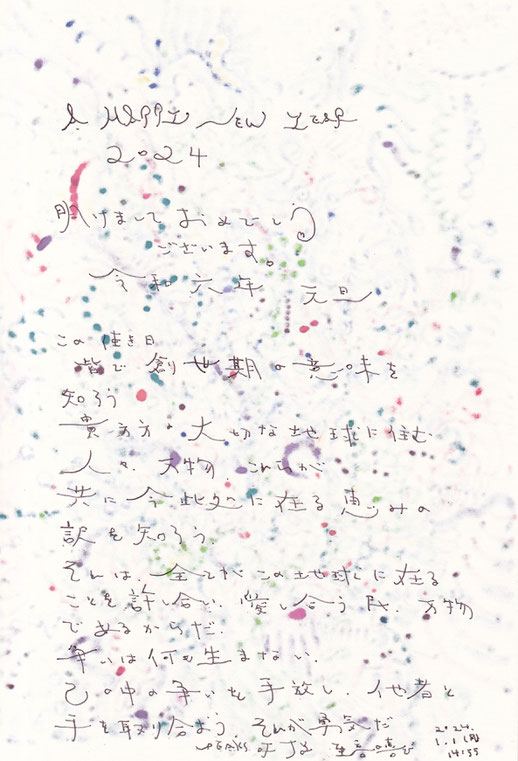 A HAPPI NEW YEAR
2024
明けましておめでとう
ございます。
令和六年 元旦
この佳き日
皆で創世期の意味を
知ろう
貴方方の大切な地球に住む
人々、万物、これらが
共に今此処に在る恵みの
訳を知ろう。
それは、全てがこの地球に在る
ことを許し合い、愛し合う民、万物
であるからだ。
争いは何も生まない。
己の中の争いを手放し、他者と
手を取り合おう それが勇気だ
2024.
1.1(月)
14:55